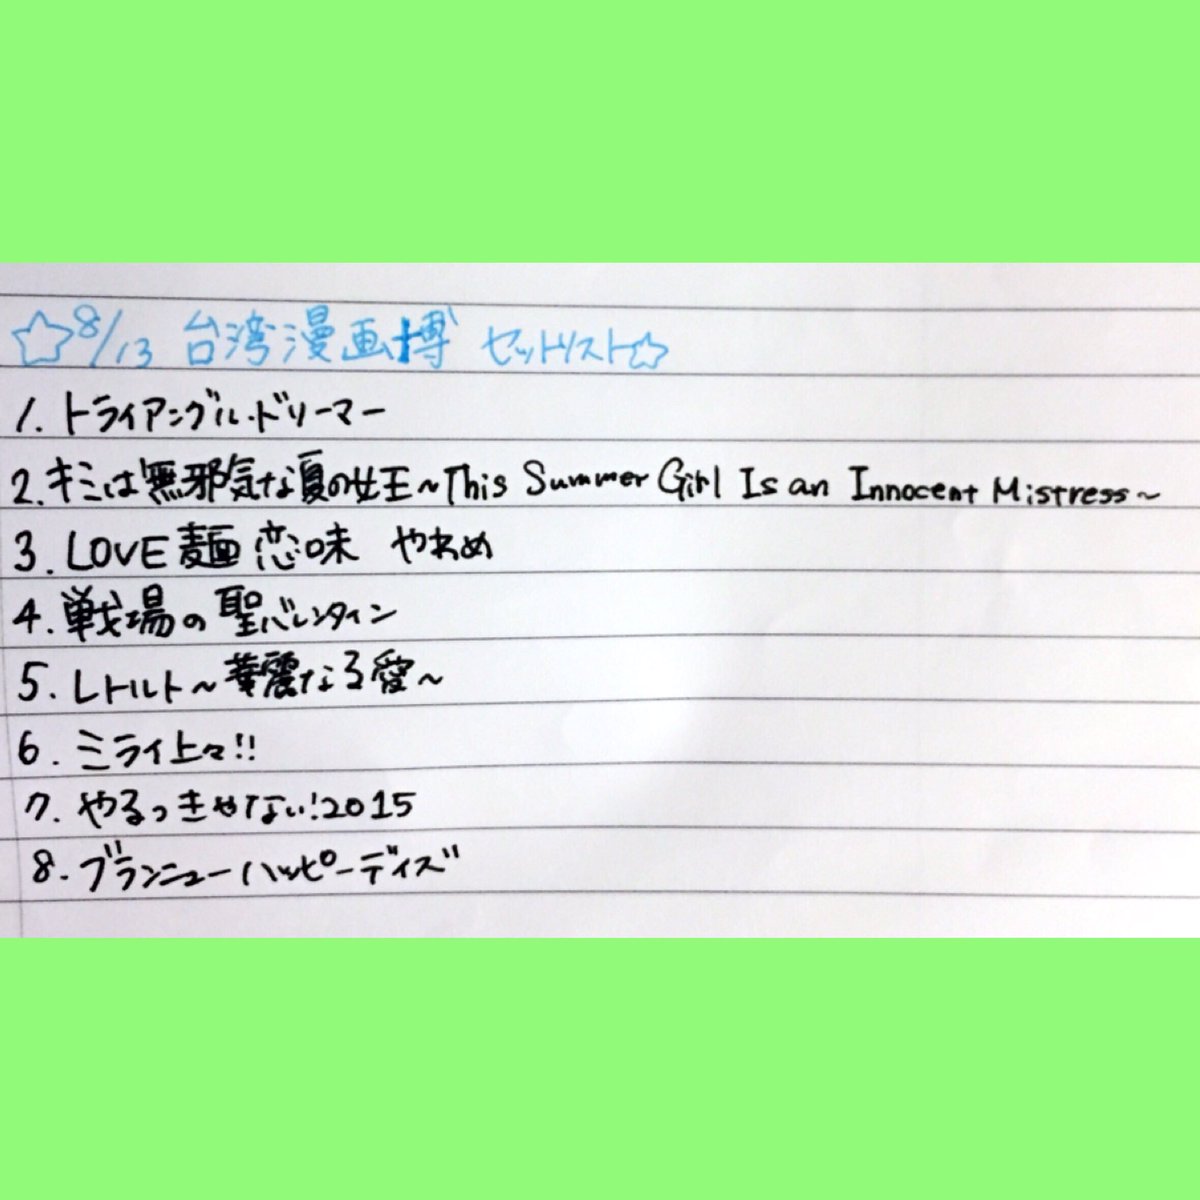 ☆8/13 台湾漫画博 セットリスト☆
1. トライアングル・ドリーマー
2. キミは無邪気な夏の女王~This Summer Girl Is an Innocent Mistress~
3. LOVE麺 恋味 やわめ
4. 戦場の聖バレンタイン
5. レトルト~華麗なる愛~
6. ミライ上々!!
7. やるっきゃない!2015
8. ブランニューハッピーデイズ